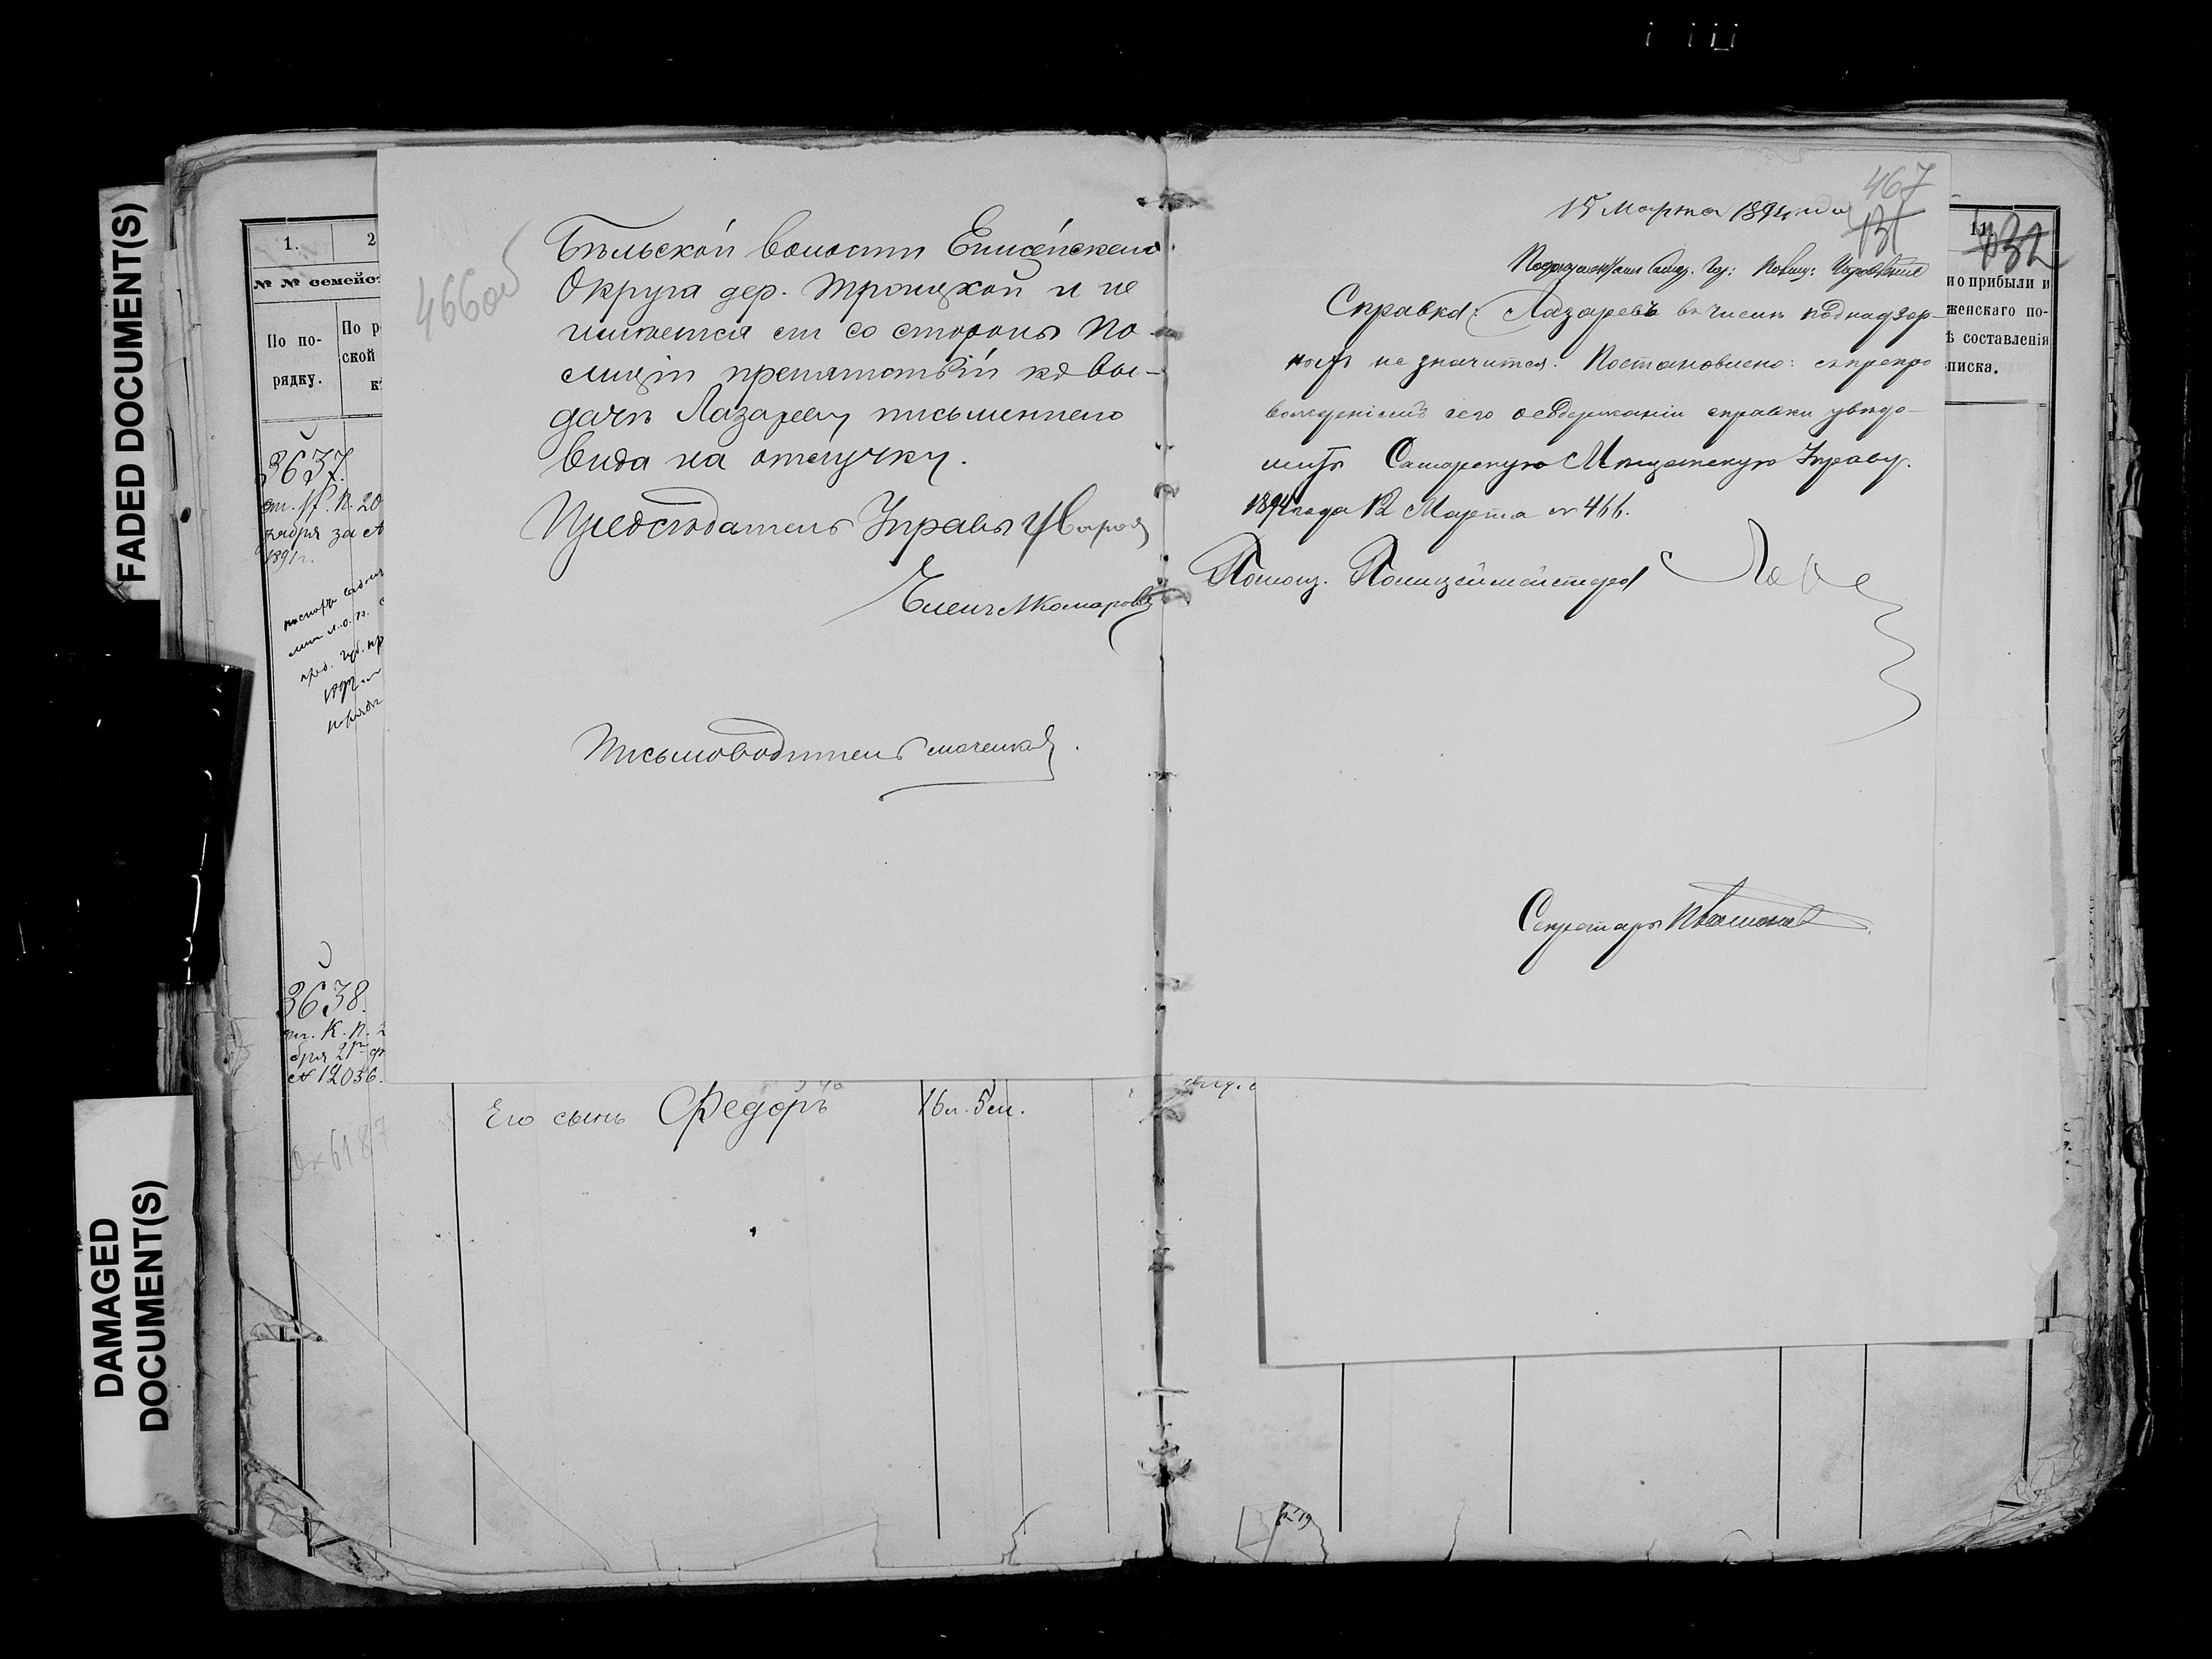 FADED DOCUMENT(S)
DAMAGED
DOCUMENT(S)
1.
2
№ № семейст
По по-
рядку.
По р
ской
к
3637.
1891 г.
3638.
№ 12036.
466об
Бѣльской волости Енисейскаго
Округа дер. Троицкой и не
имѣется ли со стороны По
лиціи препятствій къ вы-
дачѣ Лазареву письменнаго
вида на отлучку.
Предсѣдатель Управы Уваров
Членъ Комаровъ
Письмоводитель
Его сынъ Федоръ 16 л. 5 м.
467
131
15 Марта 1894 года
Справка: Лазаревъ въ числѣ поднадзор-
ныхъ не значится. Постановлено: съ препро
вожденіемъ сего о содержаніи справки увѣдо-
мить Самарскую Мѣщанскую Управу.
1894 года 12 Марта № 466.
Помощ. Полицеймейстера
Секретарь
11.
132
но прибыли и
женскаго по-
ѣ составленія
писка.